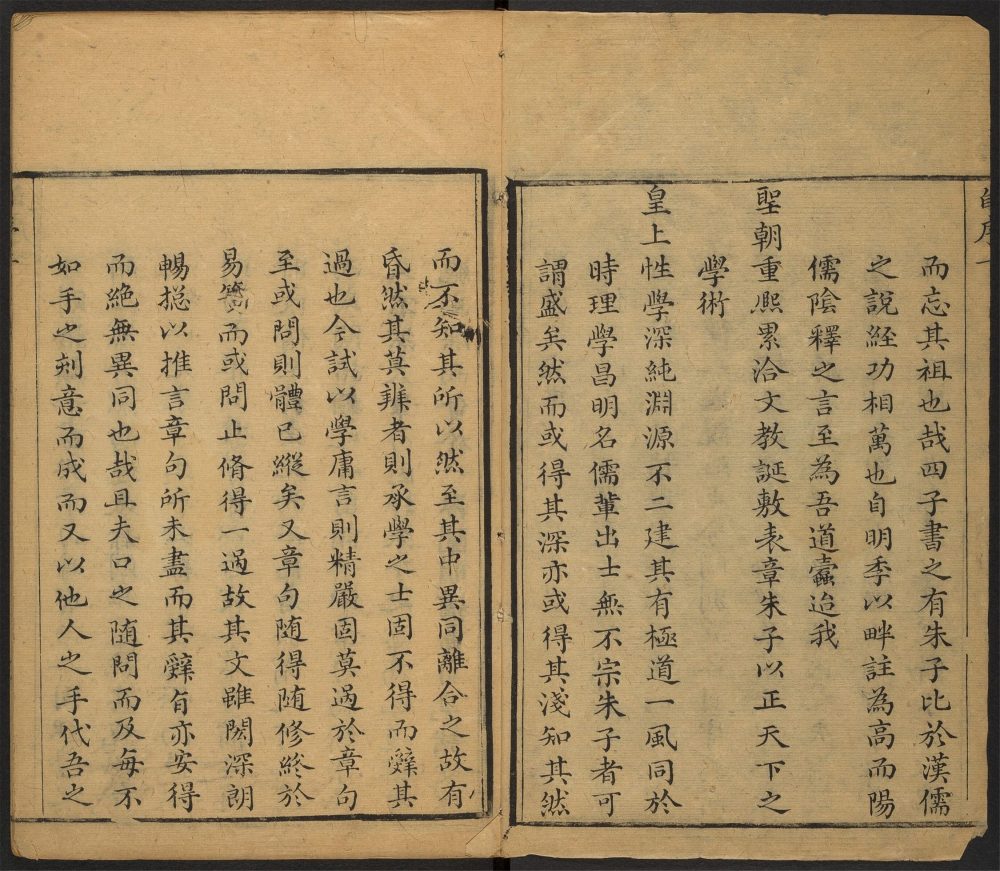 自序
而忘其祖也哉四子書之有朱子比於漢儒
之說經功相萬也自明季以畔註為高而陽
儒陰釋之言至為吾道蠹迨我
聖朝重熙累洽文教誕敷表章朱子以正天下之
學術
皇上性學深純淵源不二建其有極道一風同於
時理學昌明名儒輩出士無不宗朱子者可
謂盛矣然而或得其深亦或得其淺知其然
而不知其所以然至其中異同離合之故有
昏然其莫辨者則承學之士固不得而辭其
過也今試以學庸言則精嚴固莫過於章句
至或問則體已縱矣又章句随得随修終於
易簀而或問止脩得一過故其文雖閎深朗
暢揔以推言章句所未盡而其辭旨亦安得
而絶無異同也哉且夫口之随問而及每不
如手之刻意而成而又以他人之手代吾之